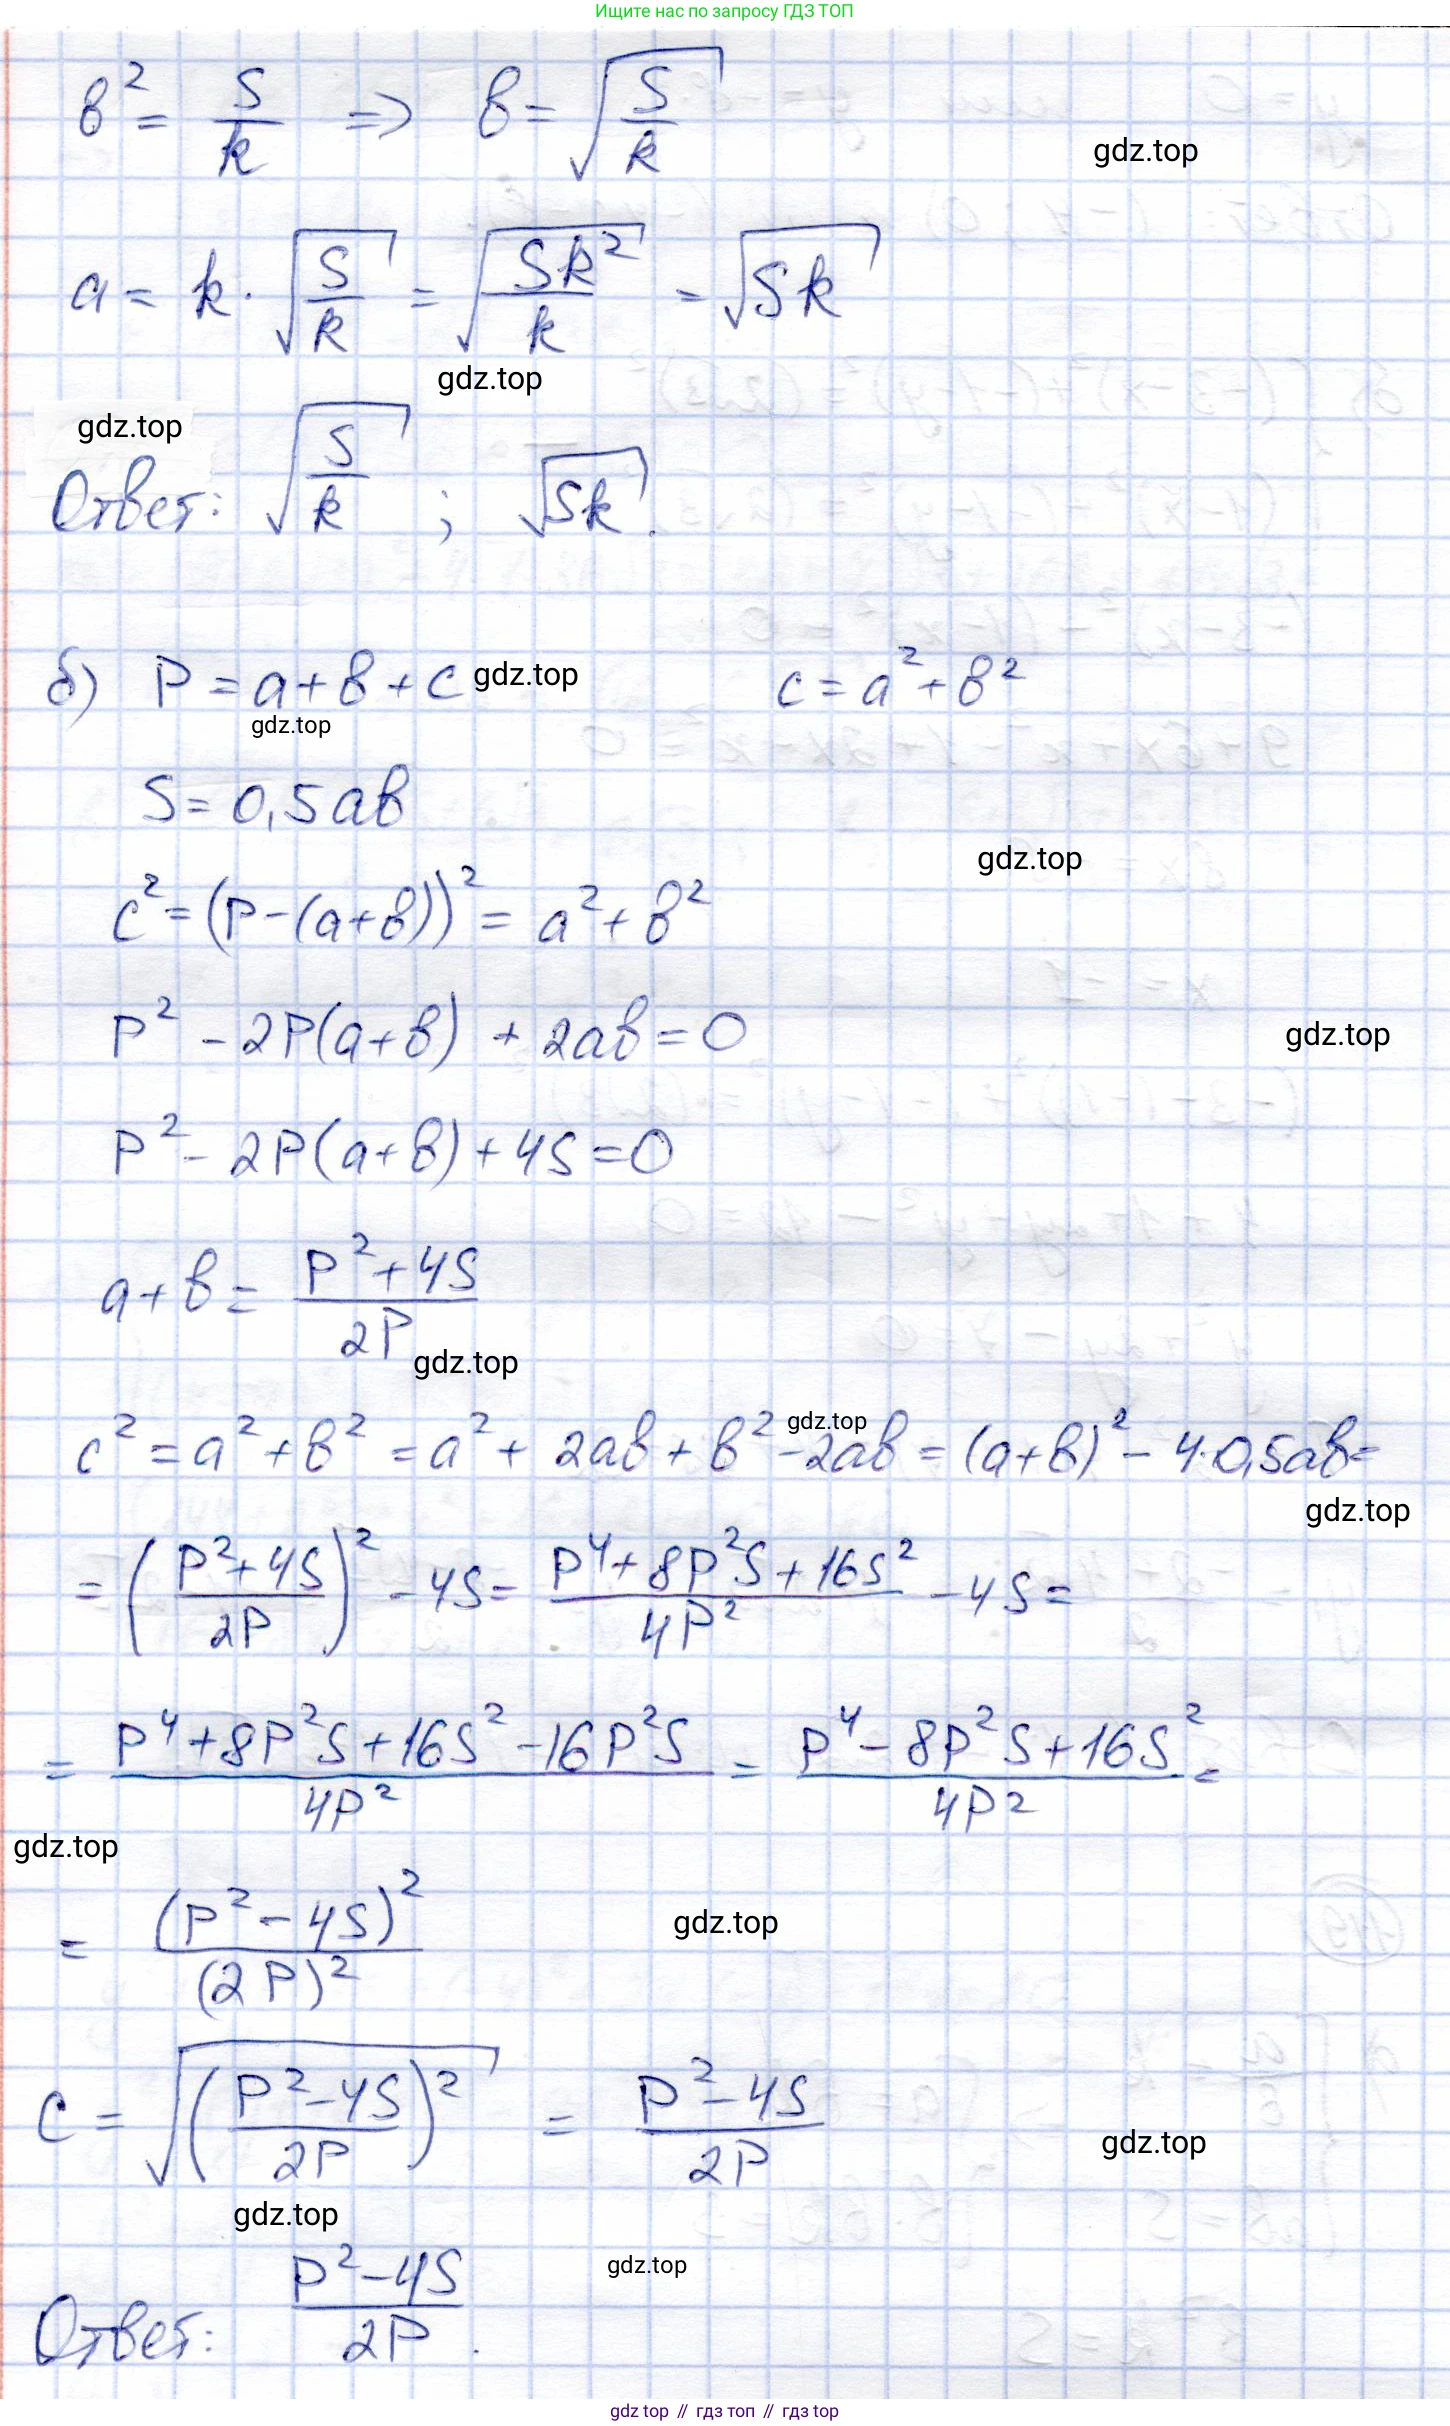 Ищите нас по запросу ГДЗ ТОП
в² = S/k ⇒ в = √(S/k)
gdz.top
a = k · √(S/k) = √(Sk²/k) = √(Sk)
gdz.top
gdz.top
Ответ: √(S/k) ; √(Sk).
б) P = a + в + c gdz.top c = a² + в²
gdz.top
S = 0,5aв
gdz.top
c² = (P - (a + в))² = a² + в²
P² - 2P(a + в) + 2aв = 0
gdz.top
P² - 2P(a + в) + 4S = 0
a + в = (P² + 4S)/(2P)
gdz.top
gdz.top
c² = a² + в² = a² + 2aв + в² - 2aв = (a + в)² - 4·0,5aв =
gdz.top
= ((P² + 4S)/(2P))² - 4S = (P⁴ + 8P²S + 16S²)/(4P²) - 4S =
= (P⁴ + 8P²S + 16S² - 16P²S)/(4P²) = (P⁴ - 8P²S + 16S²)/(4P²) =
gdz.top
= (P² - 4S)²/(2P)²
gdz.top
c = √(((P² - 4S)/(2P))²) = (P² - 4S)/(2P)
gdz.top
gdz.top
gdz.top
Ответ: (P² - 4S)/(2P).
gdz top // гдз топ // гдз top